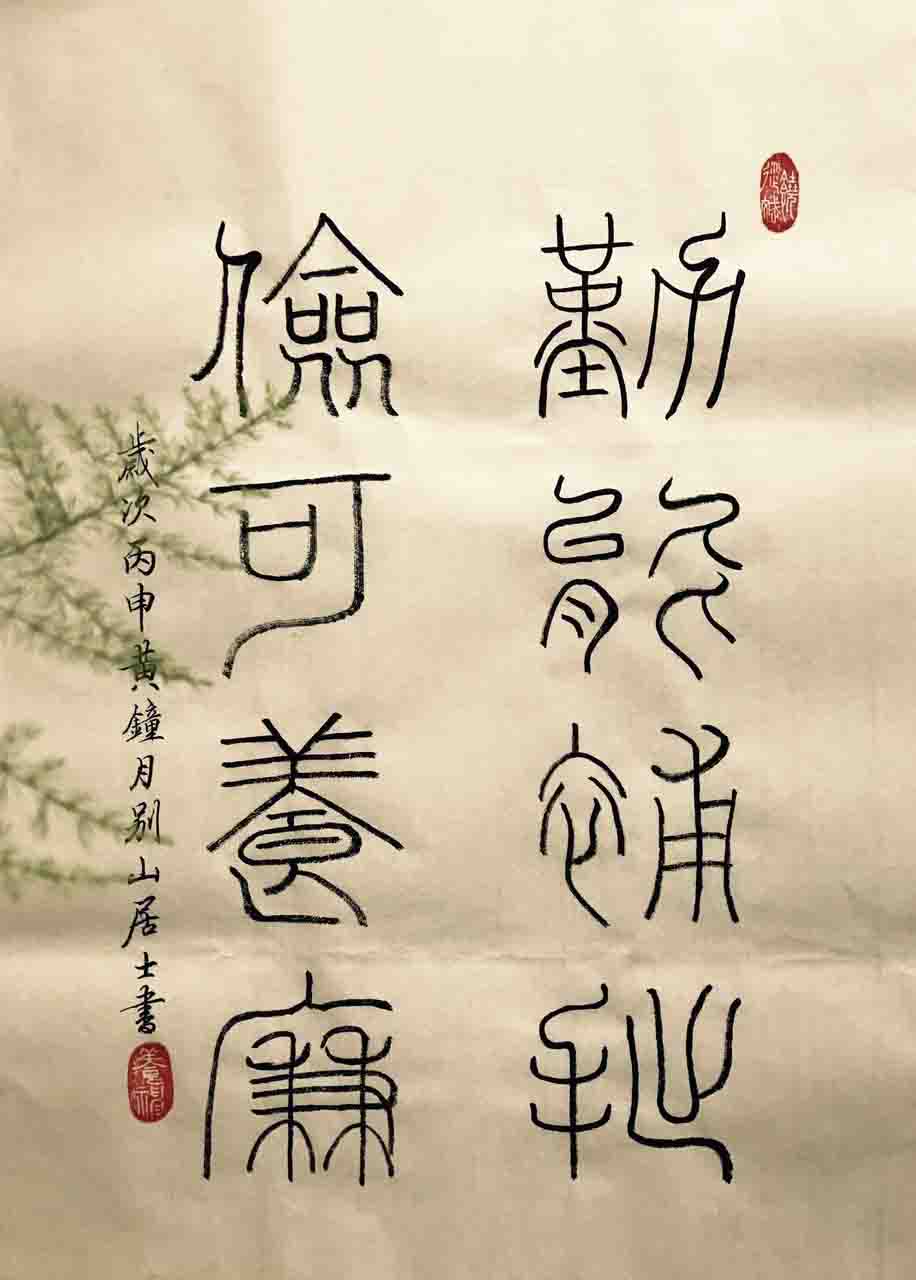 勤能補拙
儉可養廉
歲次丙申黃鐘月別山居士書